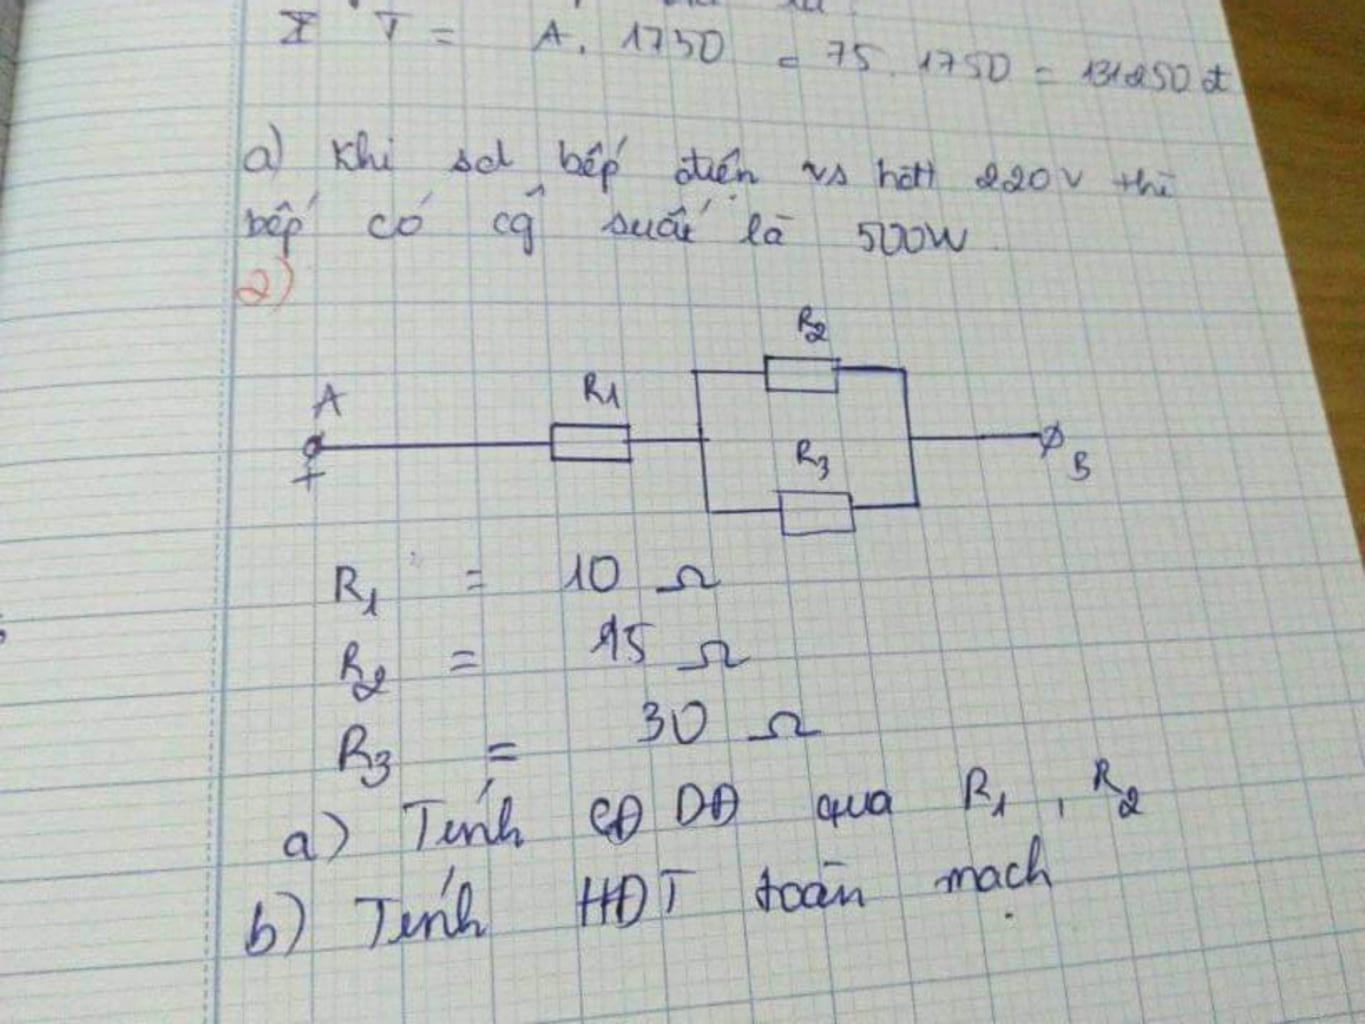 T = A. 1750 = 75. 1750 = 131250 đ
a) Khi sd bếp điện vs hđt 220V thì
bếp có cg suất là 500W
2)
R2
A R1
R3
+ B
R1 = 10 Ω
R2 = 15 Ω
R3 = 30 Ω
a) Tính CĐ DĐ qua R1, R2
b) Tính HĐT toàn mạch